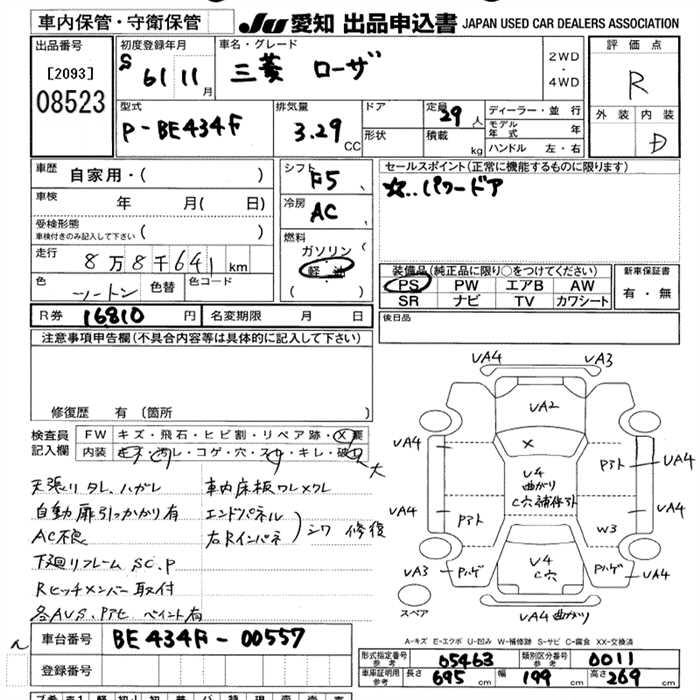 車内保管・守衛保管 JU 愛知 出品申込書 JAPAN USED CAR DEALERS ASSOCIATION
出品番号 [2093] 08523
初度登録年月 S 61 11 月
車名・グレード 三菱 ローザ
2WD・4WD
評価点 R
外装 内装 D
型式 P-BE434F
排気量 3.29 CC
ドア 形状
定員 29人
積載 kg
ディーラー・並行
モデル年式 年
ハンドル 左・右
車歴 自家用・( )
車検 年 月( 日)
受検形態 車検付きのみ記入して下さい ( )
走行 8万8千641 km
色 ツートン 色替 色コード
シフト F5
冷房 AC
燃料 ガソリン 軽油 ( )
セールスポイント(正常に機能するものに限ります)
☆..パワードア
装備品(純正品に限り○をつけてください)
PS PW エアB AW
SR ナビ TV カワシート
新車保証書 有・無
R券 16810 円 名変期限 月 日
後日品
注意事項申告欄(不具合内容等は具体的に記入して下さい)
修復歴 有(箇所 )
検査員記入欄
FW キズ・飛石・ヒビ割・リペア跡・X要
内装 キズ・汚レ・コゲ・穴・スレ・キレ・破レ 大
天張りタレ、ハガレ
自動扉引っかかり有
AC不良
下廻リフレーム SC.P
Rヒッチメンバー取付
各AUS、PアE ペイント有
車内床板ワレメクレ
エンドパネル
右Rインパネ
シワ 修復
車台番号 BE434F-00557
登録番号
VA4 VA3
VA2
X
VA4 Pアト VA4
U4 曲がり C穴補修引
VA4 Pアト W3 VA4
VA3 Pハゲ U4 C穴 Pハゲ VA4
スペア
VA4曲がり
A-キズ E-エクボ U-凹み W-補修跡 S-サビ C-腐食 XX-交換済
形式指定番号 参考 05463
類別区分番号 参考 0011
車庫証明用 参考 長さ 695 cm 幅 199 cm 高さ 269 cm